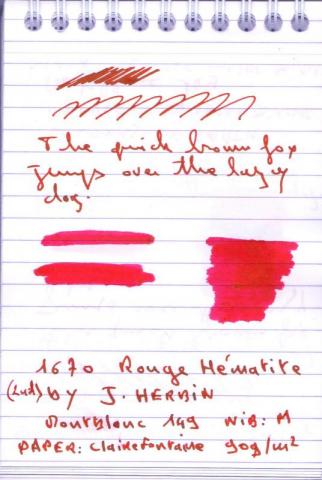 The quick brown fox
jumps over the lazy
dog.
1670 Rouge Hématite
(2nd) by J. HERBIN
Montblanc 149 NIB: M
PAPER: Clairefontaine 90g/m²